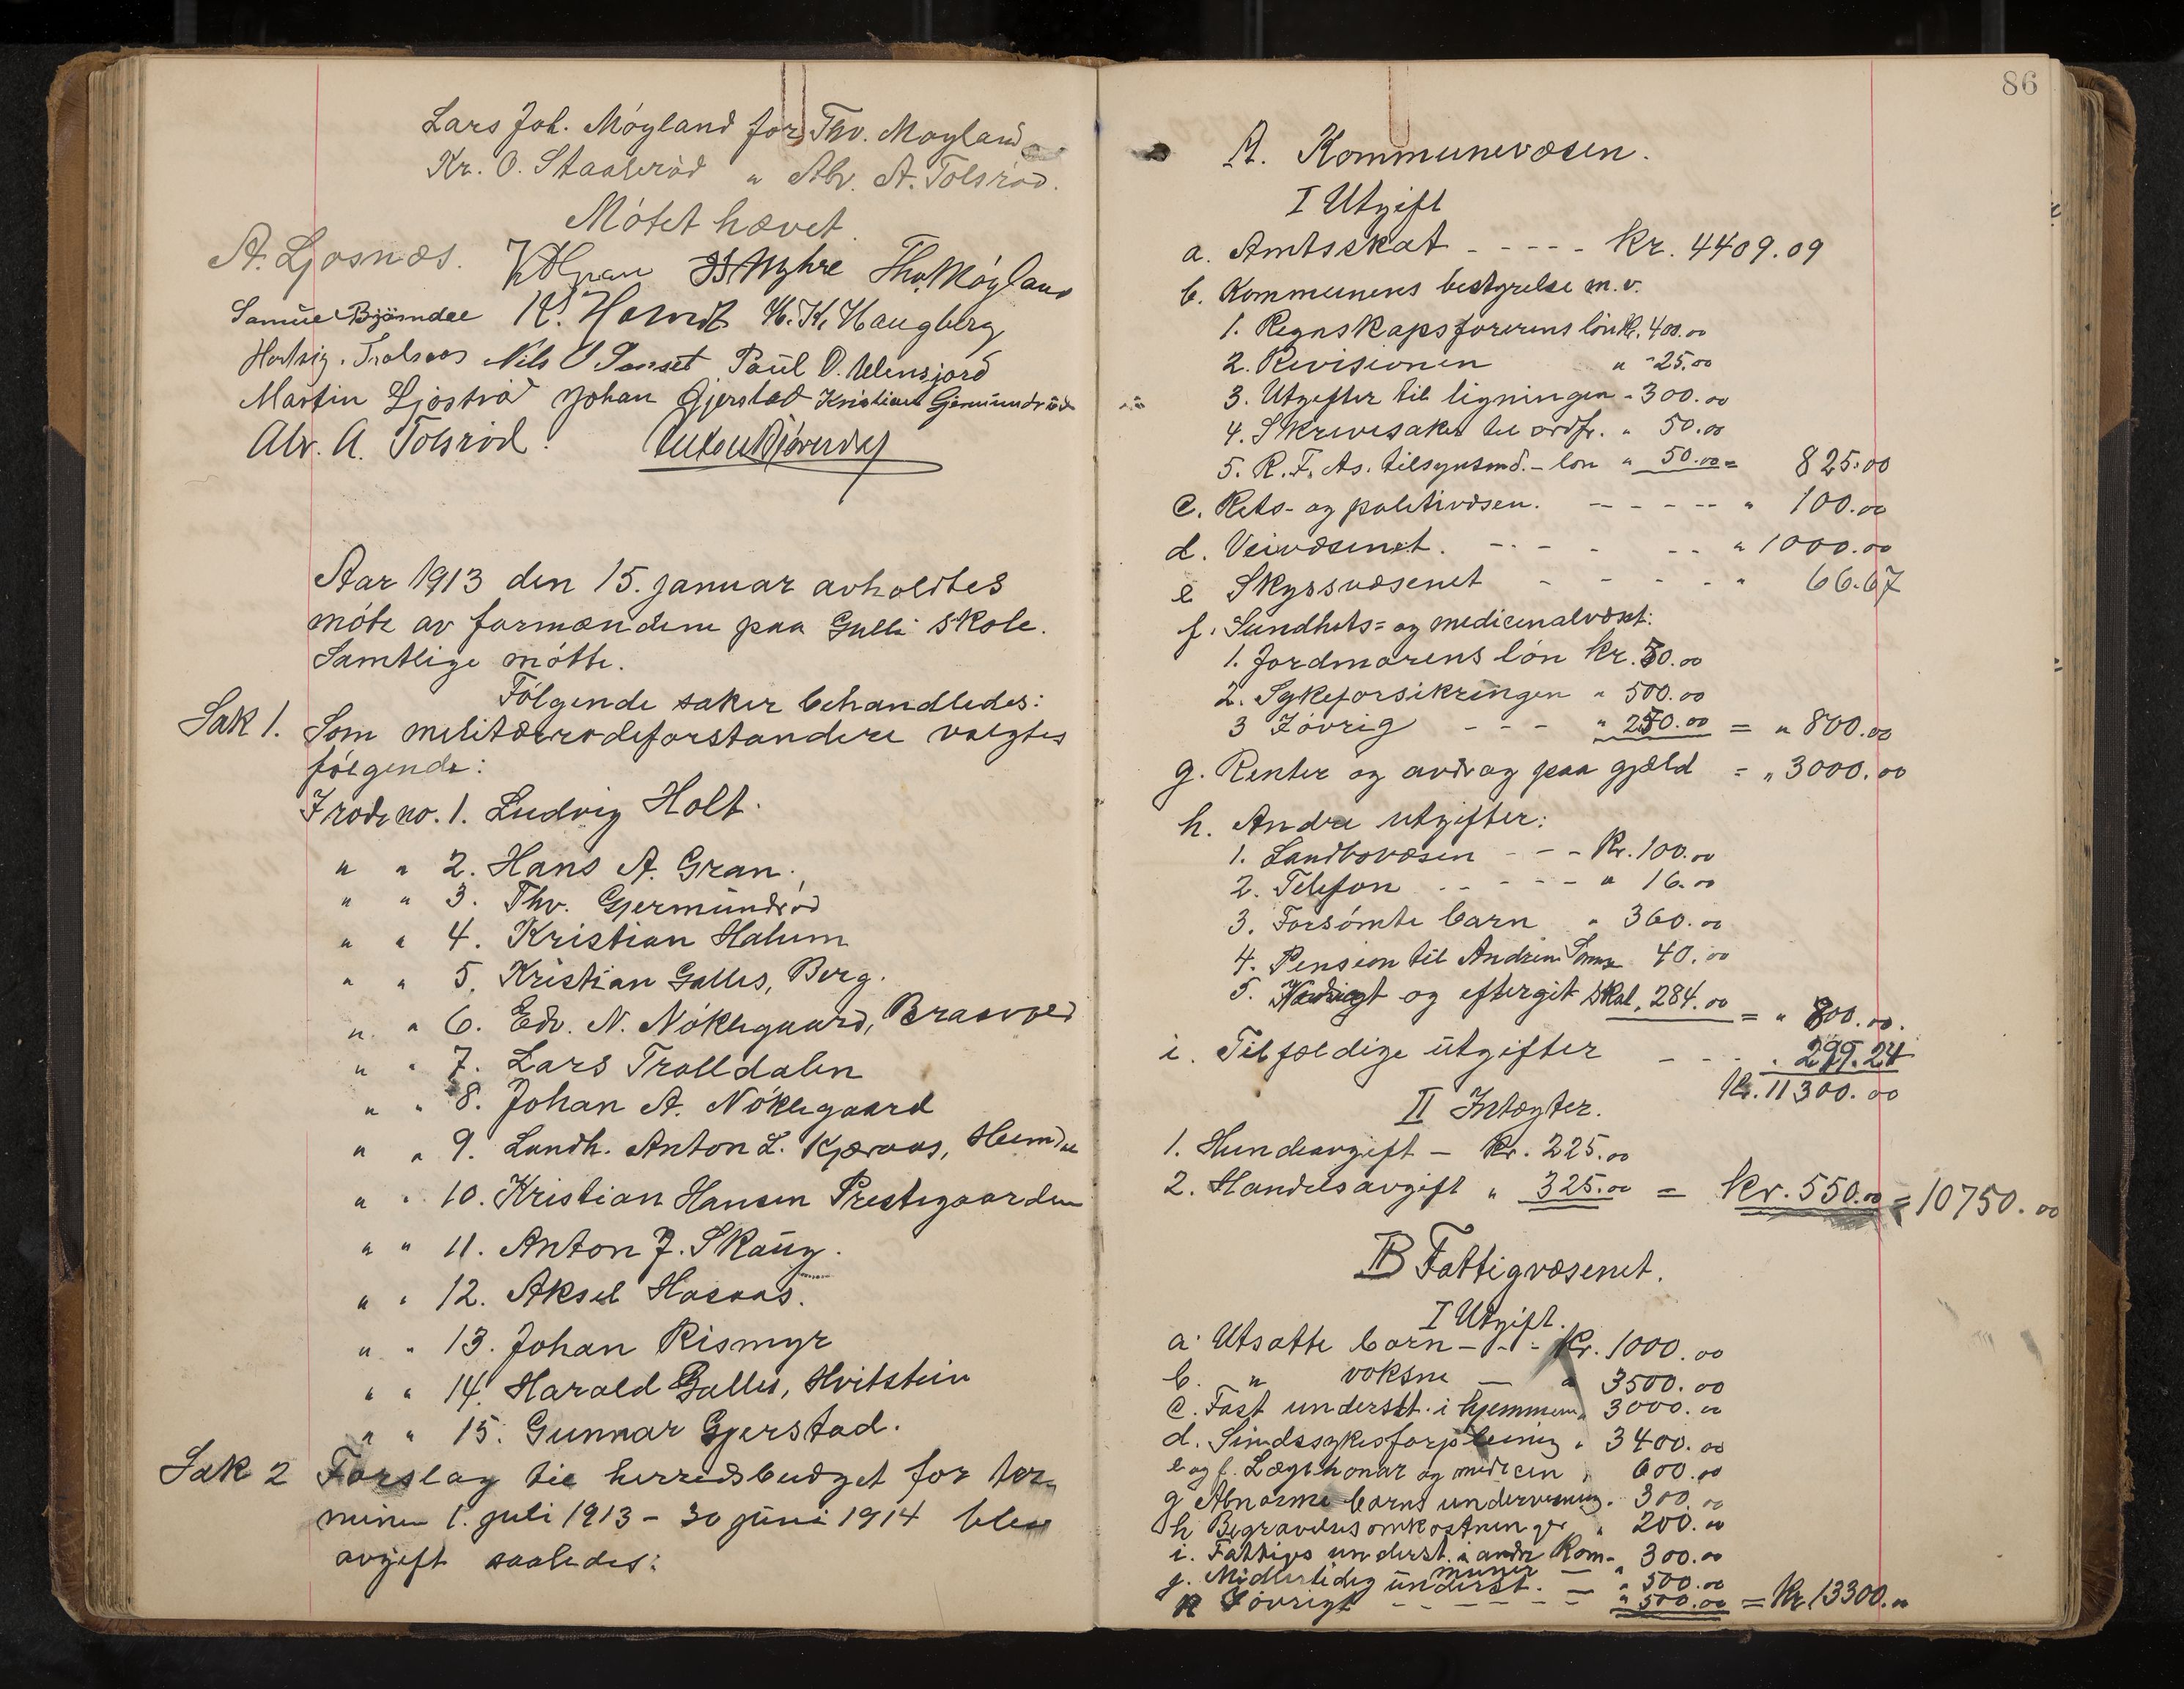 Lars Joh. Móyland for Thv. Moyland
Kr. O. Staaleród " Alv. A. Tolsród.
Mótet hævet.
A. Ljosnæs. Myhre Thv. Móyland
Samuel Bjórndal K. Hornt H. K. Haugberg
Hertvig. Nils O Sanset Paul O. Ulensjord
Martin Ljóstród Johan Gjerstad Kristian Germundród
Alv. A. Tolsród. Anton Bjórndal
Aar 1913 den 15. januar avholdtes
móte av formændene paa Gulli skole.
Samtlige mótte.
Fólgende saker behandledes:
Sak 1. Som militærrodeforstandere valgtes
fólgende:
I rode no. 1. Ludvig Holt.
" " 2. Hans A. Gran.
" " 3. Thv. Gjermundród
" " 4. Kristian Halum
" " 5. Kristian Galles, Berg.
" " 6. Edv. N. Nóklegaard, Braavold
" " 7. Lars Trolldalen
" " 8. Johan A. Nóklegaard
" " 9. Landh. Anton L. Kjæraas, Heimdal
" " 10. Kristian Hansen Prestegaarden
" " 11. Anton J. Skaug.
" " 12. Aksel Hasaas.
" " 13. Johan Rismyr
" " 14. Harald Galles, Hvitstein
" " 15. Gunnar Gjerstad.
Sak 2 Forslag til herredsbudget for ter-
minen 1. juli 1913 - 30 juni 1914 blev
avgift saaledes:
86
A. Kommunevæsen.
I Utgift
a. Amtsskat - - - - - kr. 4409.09
b. Kommunens bestyrelse m.v.
1. Regnskapsfórerens lón kr. 400.00
2. Revisionen " 25.00
3. Utgifter til ligningen - 300.00
4. Skrivesaker til ordfr. " 50.00
5. R. F. As. tilsynsmd. - lón " 50.00 = 825.00
c. Rets- og politivæsen. - - - - - " 100.00
d. Veivæsenet. - - - - - " 1000.00
e Skyssvæsenet - - - - - " 66.67
f. Sundhets= og medicinalvæst:
1. Jordmorens lón kr. 50.00
2. Sykeforsikringen " 500.00
3 Ióvrig - - - " 250.00 = " 800.00
g. Renter og avdrag paa gjæld = " 3000.00
h. Andre utgifter:
1. Landbovæsen - - - Kr. 100.00
2. Telefon - - - - - " 16.00
3. Forsómte barn " 360.00
4. Pension til Andrine 40.00
5. og eftergit skat. 284.00 = " 800.00.
i. Tilfældige utgifter - - - " 299.24
Kr. 11300.00
II Intægter.
1. Hundeavgift - kr. 225.00
2. Handelsavgift " 325.00 = kr. 550.00 = 10750.00
B Fattigvæsenet.
I Utgift.
a. Utsatte barn - - - Kr. 1000.00
b. " voksne - " 3500.00
c. Fast underst. i hjemmene " 3000.00
d. Sindssykes forpleining " 3400.00
e og f. Lægehonar og medicin " 600.00
g Abnorme barns undervisning. 300.00
h Begravelsesomkostninger " 200.00
i. Fattiges underst. i andre Kom-
muner - " 300.00
j. Midlertidig underst. - " 500.00
k Ióvrigt - - - - - - " 500.00 = Kr 13300.00